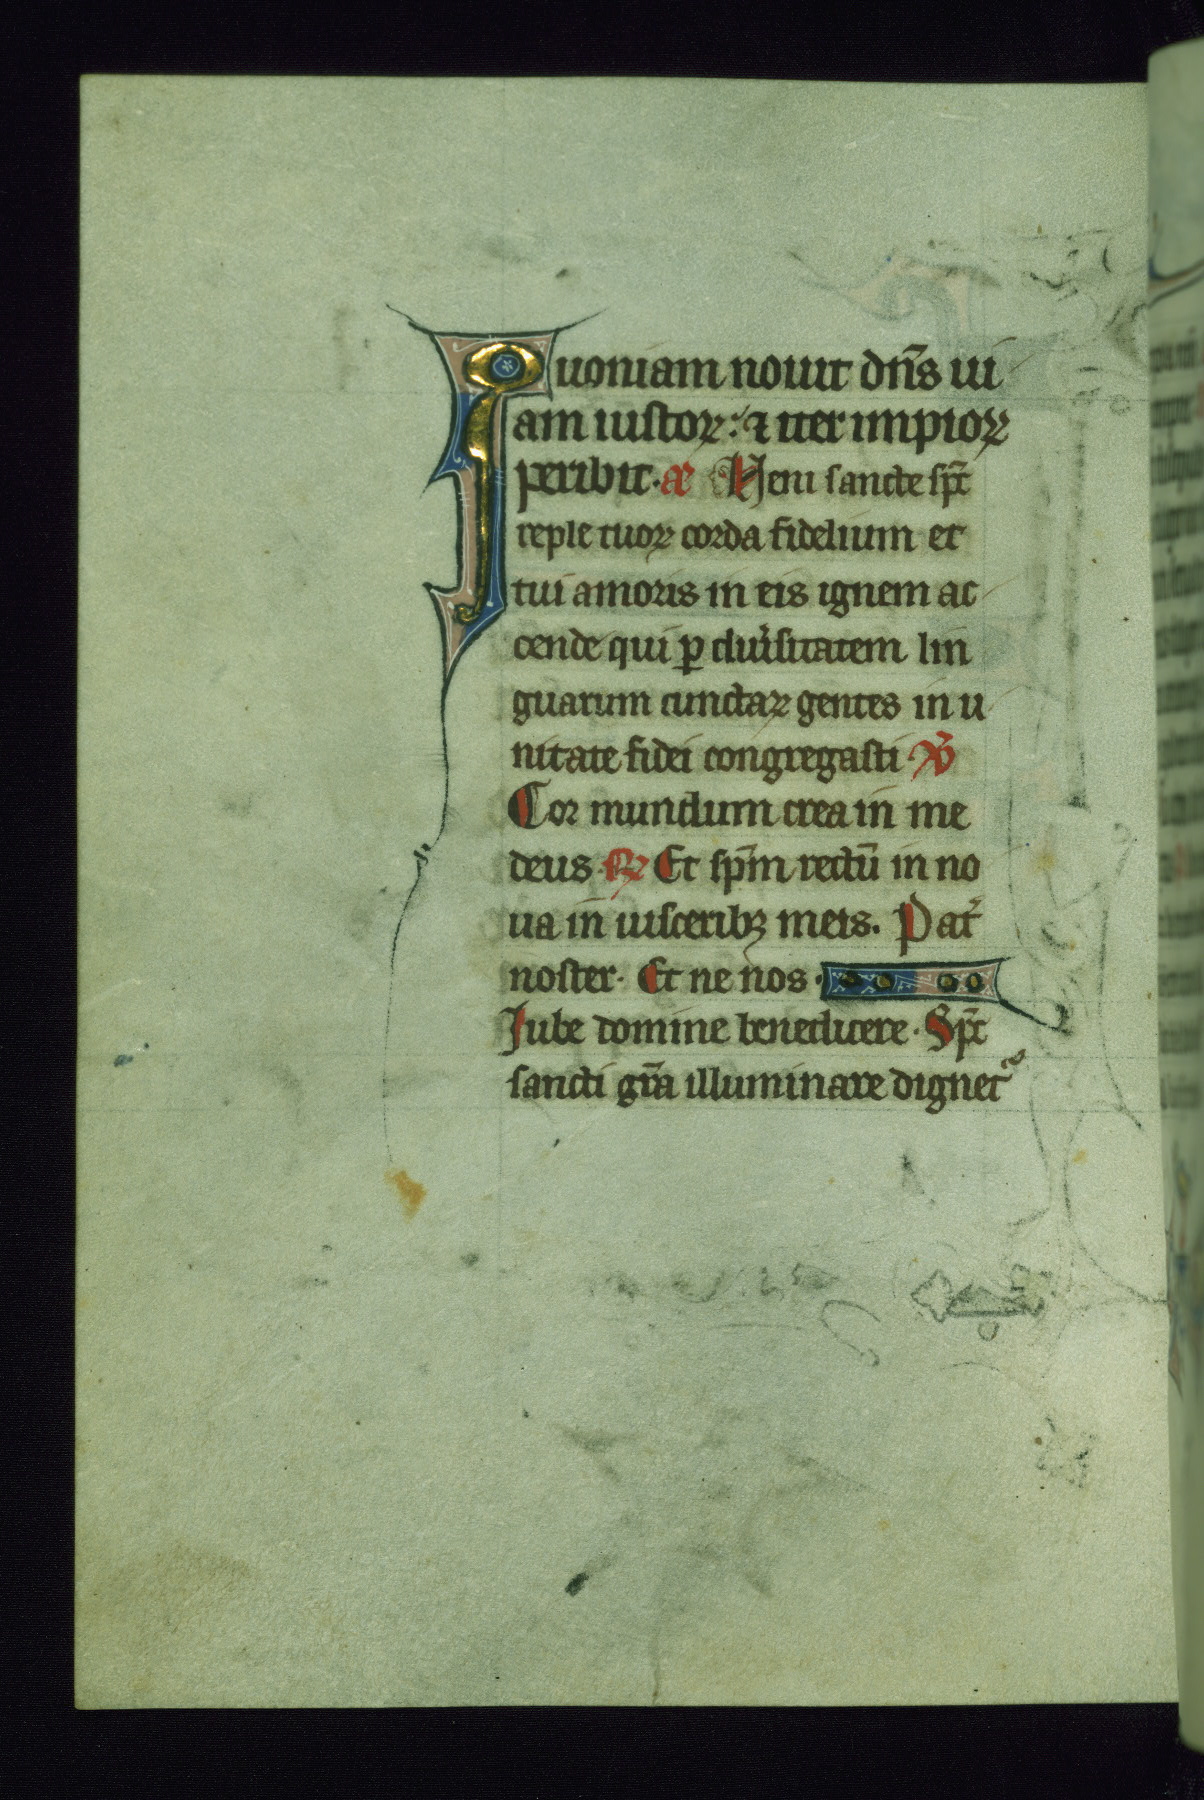 Quoniam nouit dñs ui
am iustoꝝ: ⁊ iter impioꝝ
peribit. añ Veni sancte spc̃
reple tuoꝝ corda fidelium et
tui amoris in eis ignem ac
cende qui ꝑ diũsitatem lin
guarum cunctaꝝ gentes in u
nitate fidei congregasti ℣
Cor mundum crea in me
deus. ℟ Et sp̃m rectũ in no
ua in uisceribꝫ meis. Pat̃
noster. Et ne nos.
Iube domine benedicere. Spc̃
sancti gr̃a illuminare dignet᷑